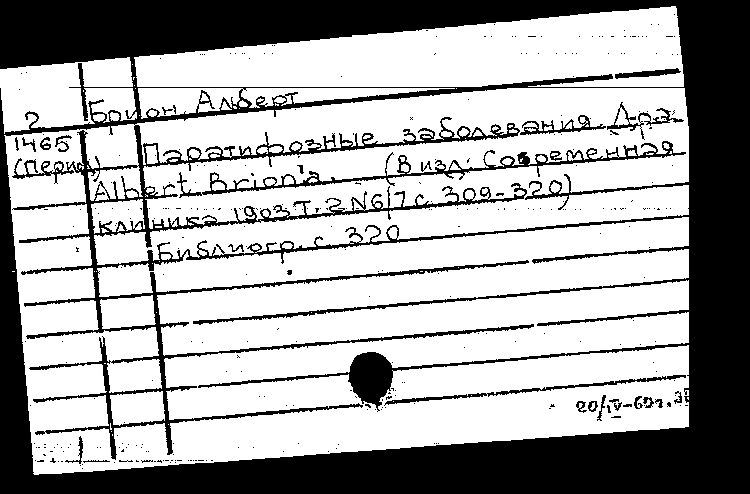 Брион, Альберт
?
1465
(Период)
Паратифозные заболевания Д-ра
Albert Brion'a. (В изд: Современная
клиника 1903 Т. 2 N 6/7 с 309-320)
Библиогр. с 320
20/IV-60г.